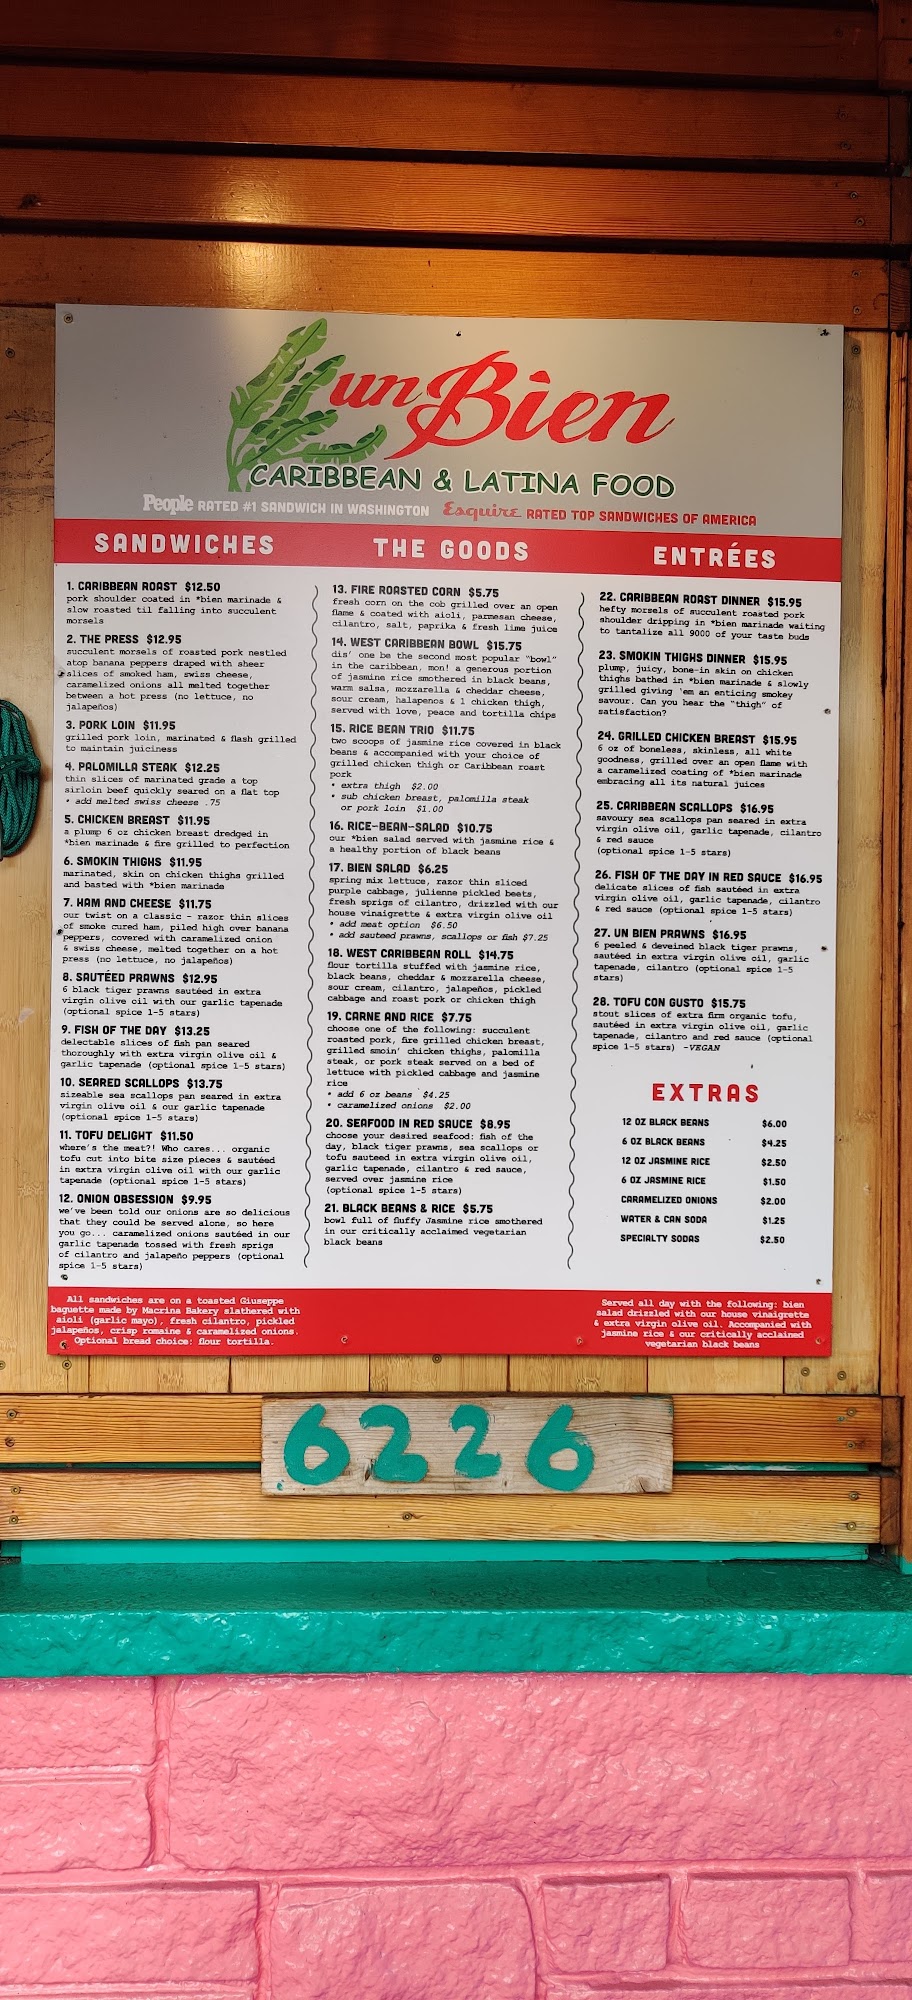 un Bien
CARIBBEAN & LATINA FOOD
People RATED #1 SANDWICH IN WASHINGTON Esquire RATED TOP SANDWICHES OF AMERICA
SANDWICHES
1. CARIBBEAN ROAST $12.50
pork shoulder coated in *bien marinade &
slow roasted til falling into succulent
morsels
2. THE PRESS $12.95
succulent morsels of roasted pork nestled
atop banana peppers draped with sheer
slices of smoked ham, swiss cheese,
caramelized onions all melted together
between a hot press (no lettuce, no
jalapeños)
3. PORK LOIN $11.95
grilled pork loin, marinated & flash grilled
to maintain juiciness
4. PALOMILLA STEAK $12.25
thin slices of marinated grade a top
sirloin beef quickly seared on a flat top
• add melted swiss cheese .75
5. CHICKEN BREAST $11.95
a plump 6 oz chicken breast dredged in
*bien marinade & fire grilled to perfection
6. SMOKIN THIGHS $11.95
marinated, skin on chicken thighs grilled
and basted with *bien marinade
7. HAM AND CHEESE $11.75
our twist on a classic - razor thin slices
of smoke cured ham, piled high over banana
peppers, covered with caramelized onion
& swiss cheese, melted together on a hot
press (no lettuce, no jalapeños)
8. SAUTÉED PRAWNS $12.95
6 black tiger prawns sautéed in extra
virgin olive oil with our garlic tapenade
(optional spice 1-5 stars)
9. FISH OF THE DAY $13.25
delectable slices of fish pan seared
thoroughly with extra virgin olive oil &
garlic tapenade (optional spice 1-5 stars)
10. SEARED SCALLOPS $13.75
sizeable sea scallops pan seared in extra
virgin olive oil & our garlic tapenade
(optional spice 1-5 stars)
11. TOFU DELIGHT $11.50
where's the meat?! Who cares... organic
tofu cut into bite size pieces & sautéed
in extra virgin olive oil with our garlic
tapenade (optional spice 1-5 stars)
12. ONION OBSESSION $9.95
we've been told our onions are so delicious
that they could be served alone, so here
you go... caramelized onions sautéed in our
garlic tapenade tossed with fresh sprigs
of cilantro and jalapeño peppers (optional
spice 1-5 stars)
All sandwiches are on a toasted Giuseppe
baguette made by Macrina Bakery slathered with
aioli (garlic mayo), fresh cilantro, pickled
jalapeños, crisp romaine & caramelized onions.
Optional bread choice: flour tortilla.
THE GOODS
13. FIRE ROASTED CORN $5.75
fresh corn on the cob grilled over an open
flame & coated with aioli, parmesan cheese,
cilantro, salt, paprika & fresh lime juice
14. WEST CARIBBEAN BOWL $15.75
dis' one be the second most popular "bowl"
in the caribbean, mon! a generous portion
of jasmine rice smothered in black beans,
warm salsa, mozzarella & cheddar cheese,
sour cream, halapenos & 1 chicken thigh,
served with love, peace and tortilla chips
15. RICE BEAN TRIO $11.75
two scoops of jasmine rice covered in black
beans & accompanied with your choice of
grilled chicken thigh or Caribbean roast
pork
• extra thigh $2.00
• sub chicken breast, palomilla steak
or pork loin $1.00
16. RICE-BEAN-SALAD $10.75
our *bien salad served with jasmine rice &
a healthy portion of black beans
17. BIEN SALAD $6.25
spring mix lettuce, razor thin sliced
purple cabbage, julienne pickled beets,
fresh sprigs of cilantro, drizzled with our
house vinaigrette & extra virgin olive oil
• add meat option $6.50
• add sauteed prawns, scallops or fish $7.25
18. WEST CARIBBEAN ROLL $14.75
flour tortilla stuffed with jasmine rice,
black beans, cheddar & mozzarella cheese,
sour cream, cilantro, jalapeños, pickled
cabbage and roast pork or chicken thigh
19. CARNE AND RICE $7.75
choose one of the following: succulent
roasted pork, fire grilled chicken breast,
grilled smoin' chicken thighs, palomilla
steak, or pork steak served on a bed of
lettuce with pickled cabbage and jasmine
rice
• add 6 oz beans $4.25
• caramelized onions $2.00
20. SEAFOOD IN RED SAUCE $8.95
choose your desired seafood: fish of the
day, black tiger prawns, sea scallops or
tofu sauteed in extra virgin olive oil,
garlic tapenade, cilantro & red sauce,
served over jasmine rice
(optional spice 1-5 stars)
21. BLACK BEANS & RICE $5.75
bowl full of fluffy Jasmine rice smothered
in our critically acclaimed vegetarian
black beans
ENTRÉES
22. CARIBBEAN ROAST DINNER $15.95
hefty morsels of succulent roasted pork
shoulder dripping in *bien marinade waiting
to tantalize all 9000 of your taste buds
23. SMOKIN THIGHS DINNER $15.95
plump, juicy, bone-in skin on chicken
thighs bathed in *bien marinade & slowly
grilled giving 'em an enticing smokey
savour. Can you hear the "thigh" of
satisfaction?
24. GRILLED CHICKEN BREAST $15.95
6 oz of boneless, skinless, all white
goodness, grilled over an open flame with
a caramelized coating of *bien marinade
embracing all its natural juices
25. CARIBBEAN SCALLOPS $16.95
savoury sea scallops pan seared in extra
virgin olive oil, garlic tapenade, cilantro
& red sauce
(optional spice 1-5 stars)
26. FISH OF THE DAY IN RED SAUCE $16.95
delicate slices of fish sautéed in extra
virgin olive oil, garlic tapenade, cilantro
& red sauce (optional spice 1-5 stars)
27. UN BIEN PRAWNS $16.95
6 peeled & deveined black tiger prawns,
sautéed in extra virgin olive oil, garlic
tapenade, cilantro (optional spice 1-5
stars)
28. TOFU CON GUSTO $15.75
stout slices of extra firm organic tofu,
sautéed in extra virgin olive oil, garlic
tapenade, cilantro and red sauce (optional
spice 1-5 stars) -VEGAN
EXTRAS
12 OZ BLACK BEANS $6.00
6 OZ BLACK BEANS $4.25
12 OZ JASMINE RICE $2.50
6 OZ JASMINE RICE $1.50
CARAMELIZED ONIONS $2.00
WATER & CAN SODA $1.25
SPECIALTY SODAS $2.50
Served all day with the following: bien
salad drizzled with our house vinaigrette
& extra virgin olive oil. Accompanied with
jasmine rice & our critically acclaimed
vegetarian black beans
6226